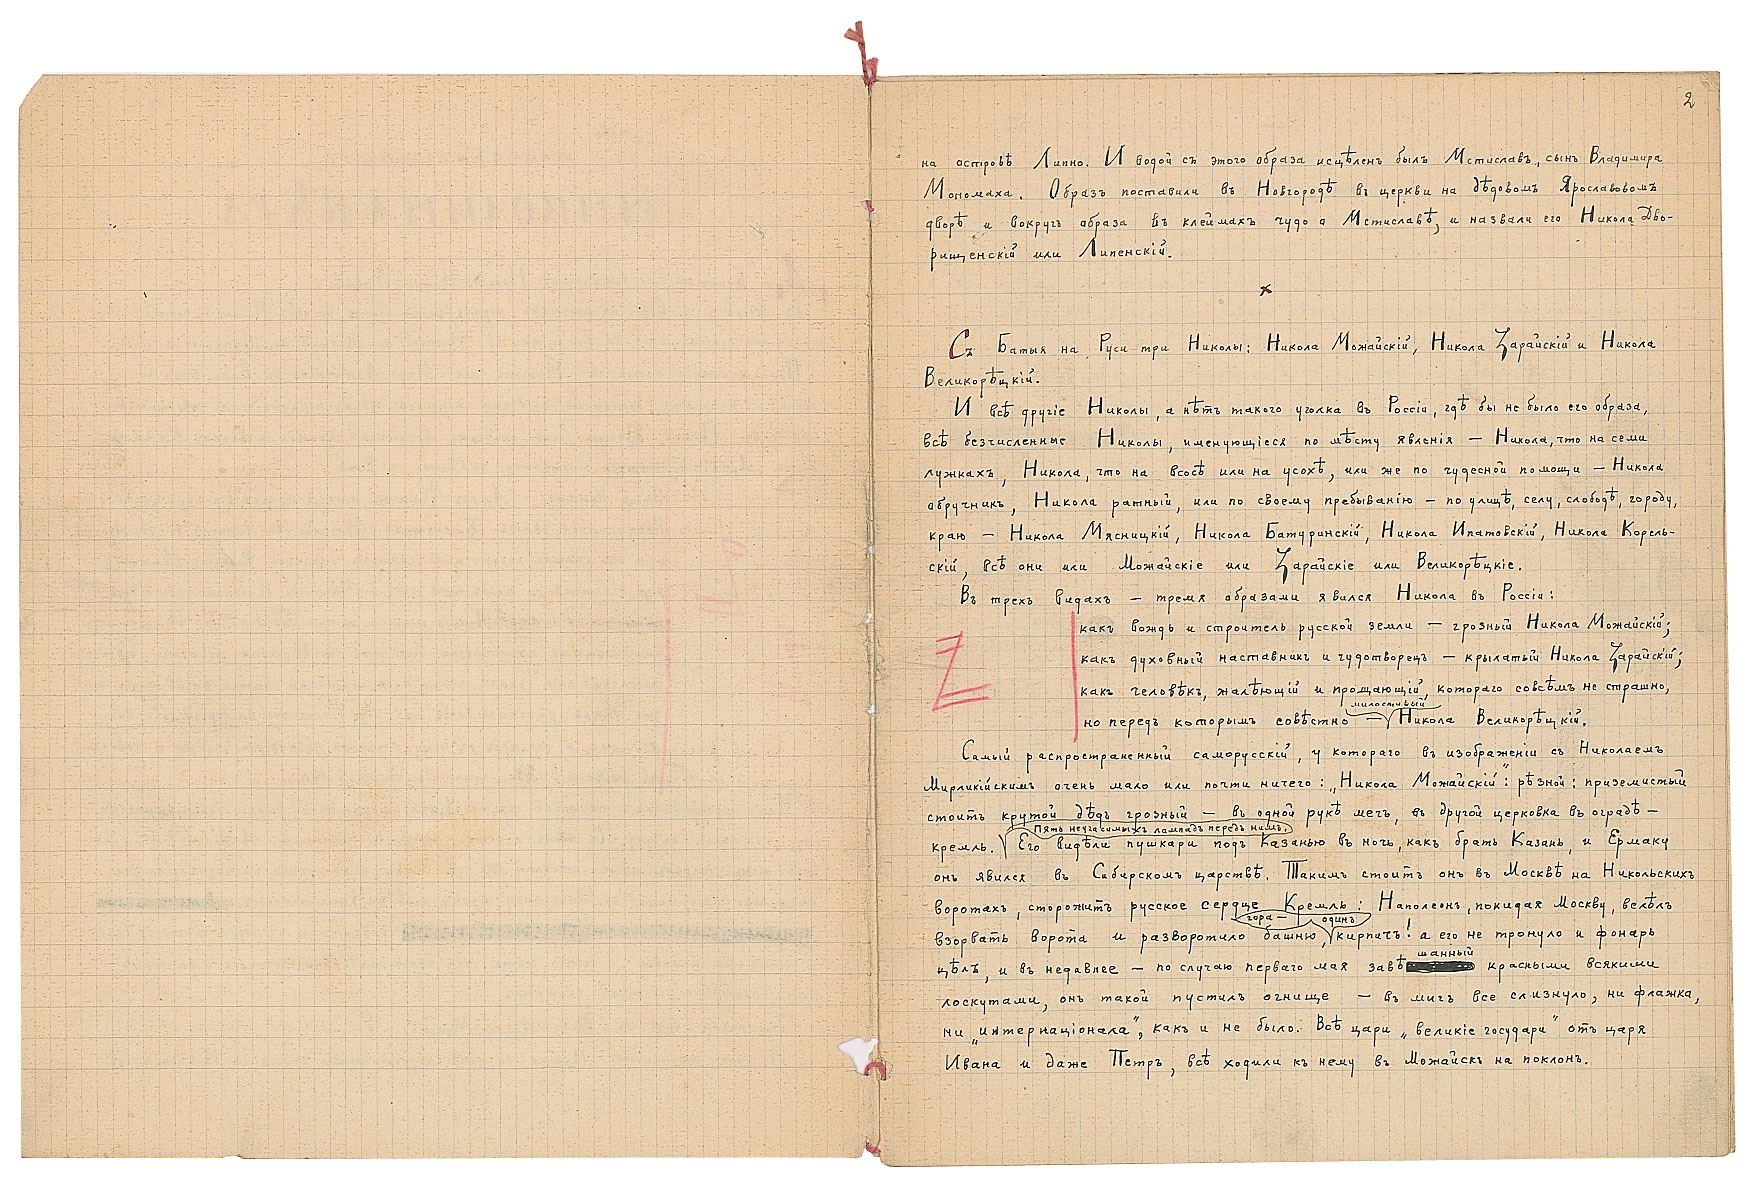 2
на островѣ Липно. И водой съ этого образа исцѣленъ былъ Мстиславъ, сынъ Владимира
Мономаха. Образъ поставили въ Новгородѣ въ церкви на дѣдовомъ Ярославовомъ
дворѣ и вокругъ образа въ клеймахъ чудо о Мстиславѣ, и назвали его Никола Дво-
рищенскій или Липенскій.
x
Съ Батыя на Руси три Николы: Никола Можайскій, Никола Зарайскій и Никола
Великорѣцкій.
И всѣ другіе Николы, а нѣтъ такого уголка въ Россіи, гдѣ бы не было его образа,
всѣ безчисленные Николы, именующіеся по мѣсту явленія — Никола, что на семи
лужкахъ, Никола, что на всосѣ или на усохѣ, или же по чудесной помощи — Никола
обручникъ, Никола ратный, или по своему пребыванію — по улицѣ, селу, слободѣ, городу,
краю — Никола Мясницкій, Никола Батуринскій, Никола Ипатовскій, Никола Корель-
скій, всѣ они или Можайскіе или Зарайскіе или Великорѣцкіе.
Въ трехъ видахъ — тремя образами явился Никола въ Россіи:
какъ вождь и строитель русской земли — грозный Никола Можайскій;
Z
какъ духовный наставникъ и чудотворецъ — крылатый Никола Зарайскій;
какъ человѣкъ, жалѣющій и прощающій, котораго совсѣмъ не страшно,
милостивый
но передъ которымъ совѣстно — Никола Великорѣцкій.
Самый распространенный саморусскій, у котораго въ изображеніи съ Николаемъ
Мирликійскимъ очень мало или почти ничего: „Никола Можайскій": рѣзной: приземистый
стоитъ крутой дѣдъ грозный — въ одной рукѣ мечъ, въ другой церковка въ оградѣ —
Пять неугасимыхъ лампадъ передъ нимъ.
кремль. Его видѣли пушкари подъ Казанью въ ночь, какъ брать Казань, и Ермаку
онъ явился въ Сибирскомъ царствѣ. Такимъ стоитъ онъ въ Москвѣ на Никольскихъ
воротахъ, сторожитъ русское сердце Кремль: Наполеонъ, покидая Москву, велѣлъ
гора — одинъ
взорвать ворота и разворотило башню, кирпичъ! а его не тронуло и фонарь
шанный
цѣлъ, и въ недавнее — по случаю перваго мая завѣ красными всякими
лоскутами, онъ такой пустилъ огнище — въ мигъ все слизнуло, ни флажка,
ни „интернаціонала", какъ и не было. Всѣ цари „великіе государи" отъ царя
Ивана и даже Петръ, всѣ ходили къ нему въ Можайскъ на поклонъ.